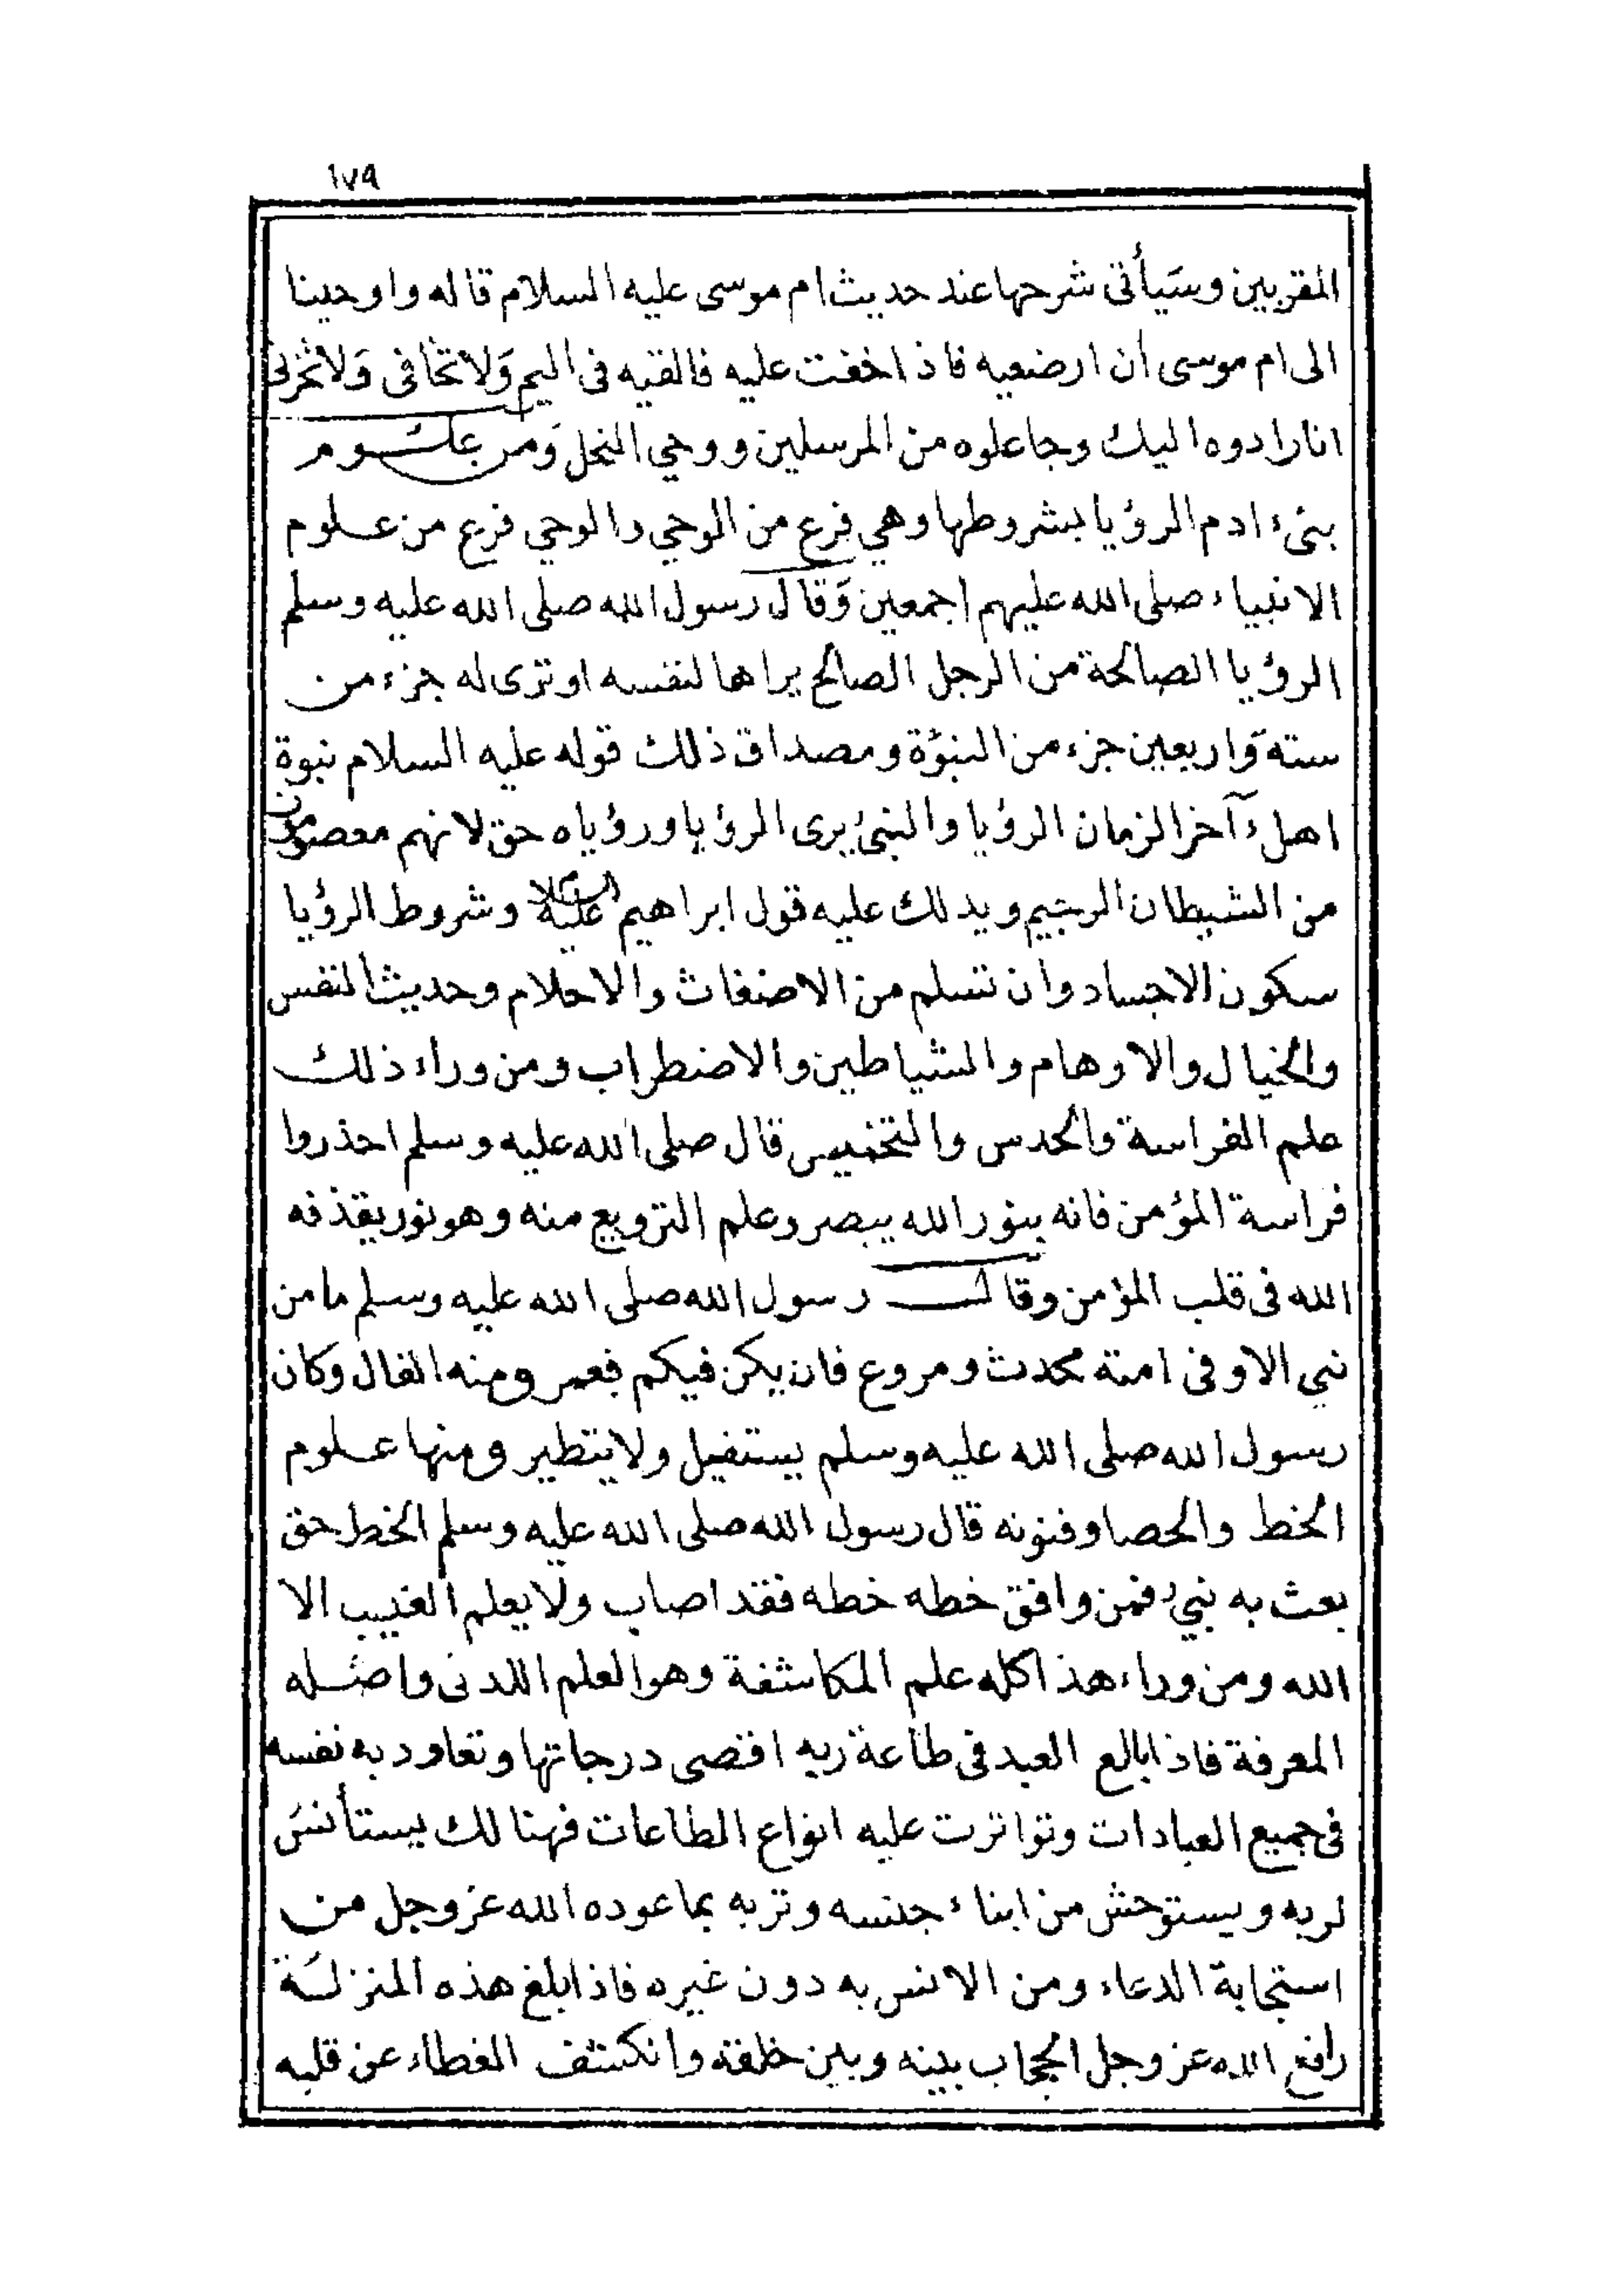 ١٧٩
المقربين وسيأتى شرحها عند حديث ام موسى عليه السلام قاله واوحينا
الى ام موسى أن ارضعيه فاذا خفت عليه فالقيه فى اليم وَلاتخافى وَلاتحزنى
انا رادوه اليك وجاعلوه من المرسلين ووحي النحل وَمن علوم
بنىء ادم الرؤيا بشروطها وهي فرع من الوحي والوحي فرع من علوم
الانبياء صلى الله عليهم اجمعين وَقال رسول الله صلى الله عليه وسلم
الرؤيا الصالحة من الرجل الصالح يراها لنفسه او ترى له جزء من
ستة وَاربعين جزء من النبؤة ومصداق ذلك قوله عليه السلام نبوة
اهلء آخر الزمان الرؤيا والنبىء يرى الرؤيا ورؤياه حق لانهم معصومون
من الشيطان الرجيم ويدلك عليه قول ابراهيم عليه السلام وشروط الرؤيا
سكون الاجساد وان تسلم من الاضغاث والاحلام وحديث النفس
والخيال والاوهام والشياطين والاضطراب ومن وراء ذلك
علم الفراسة والحدس والتخميس قال صلى الله عليه وسلم احذروا
فراسة المؤمن فانه بنور الله يبصر وعلم الترويع منه وهو نور يقذفه
الله فى قلب المؤمن وقال رسول الله صلى الله عليه وسلم ما من
نبي الا وفى امته محدث ومروع فان يكن فيكم فعمر ومنه الفال وكان
رسول الله صلى الله عليه وسلم يستفيل ولا يتطير ومنها علوم
الخط والحصا وفنونه قال رسول الله صلى الله عليه وسلم الخط حق
بعث به نبيء فمن وافق خطه خطه فقد اصاب ولا يعلم الغيب الا
الله ومن وراء هذا كله علم المكاشفة وهو العلم اللدنى واصله
المعرفة فاذا بالع العبد فى طاعة ربه اقصى درجاتها وتعاود به نفسه
فى جميع العبادات وتواترت عليه انواع الطاعات فهنالك يستأنس
لربه ويستوحش من ابناء جنسه وتربه بما عوده الله عز وجل من
استجابة الدعاء ومن الانس به دون غيره فاذا بلغ هذه المنزلة
رافع الله عز وجل الحجاب بينه وبين خلقه وانكشف الغطاء عن قلبه